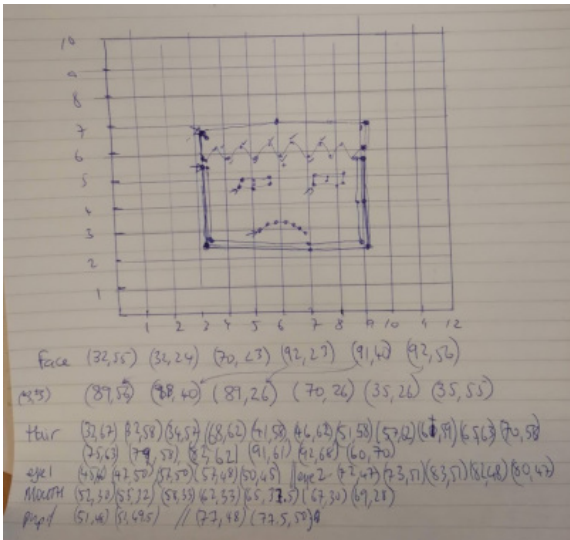 10
9
8
7
6
5
4
3
2
1
1 2 3 4 5 6 7 8 9 10 12
Face (32,55) (32,24) (70,23) (92,23) (91,40) (92,56)
(89,56) (88,40) (89,26) (70,26) (35,26) (35,55)
Hair (32,67) (32,58) (34,57) (38,62) (41,58) (46,62) (51,58) (57,62) (65,63) (70,58)
(75,63) (79,58) (83,62) (91,61) (92,68) (60,70)
eye1 (47,50) (57,50) (57,48) (50,48) // eye2 (72,47) (73,51) (83,51) (82,48) (80,47)
Mouth (52,30) (55,32) (58,33) (62,33) (65,32.5) (67,30) (69,28)
(51,48) (51,49.5) // (77,48) (77.5,50)